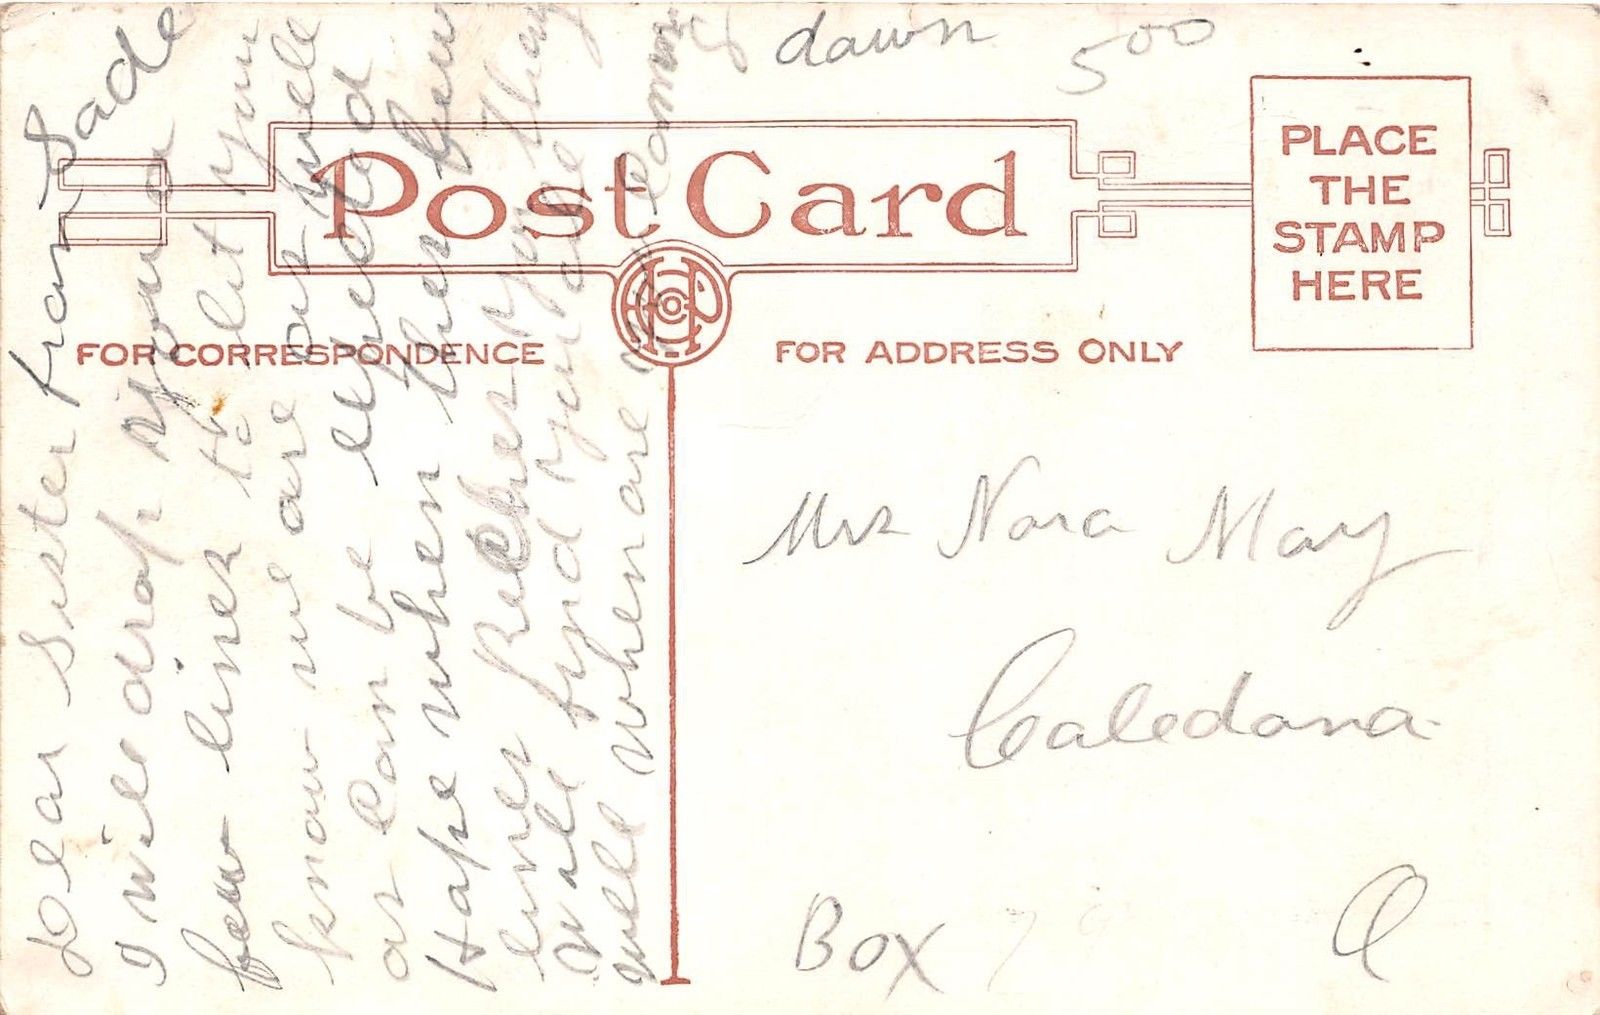 Dear Sister from Sade
I will drop you a
few lines to let you
know we are all well
as can be expected
Hope when these few
lines Reaches you they
will find you all
well when are you coming
dawn
500
Post Card
PLACE
THE
STAMP
HERE
FOR CORRESPONDENCE
FOR ADDRESS ONLY
Mrs Nora May
Caledona
Box
O